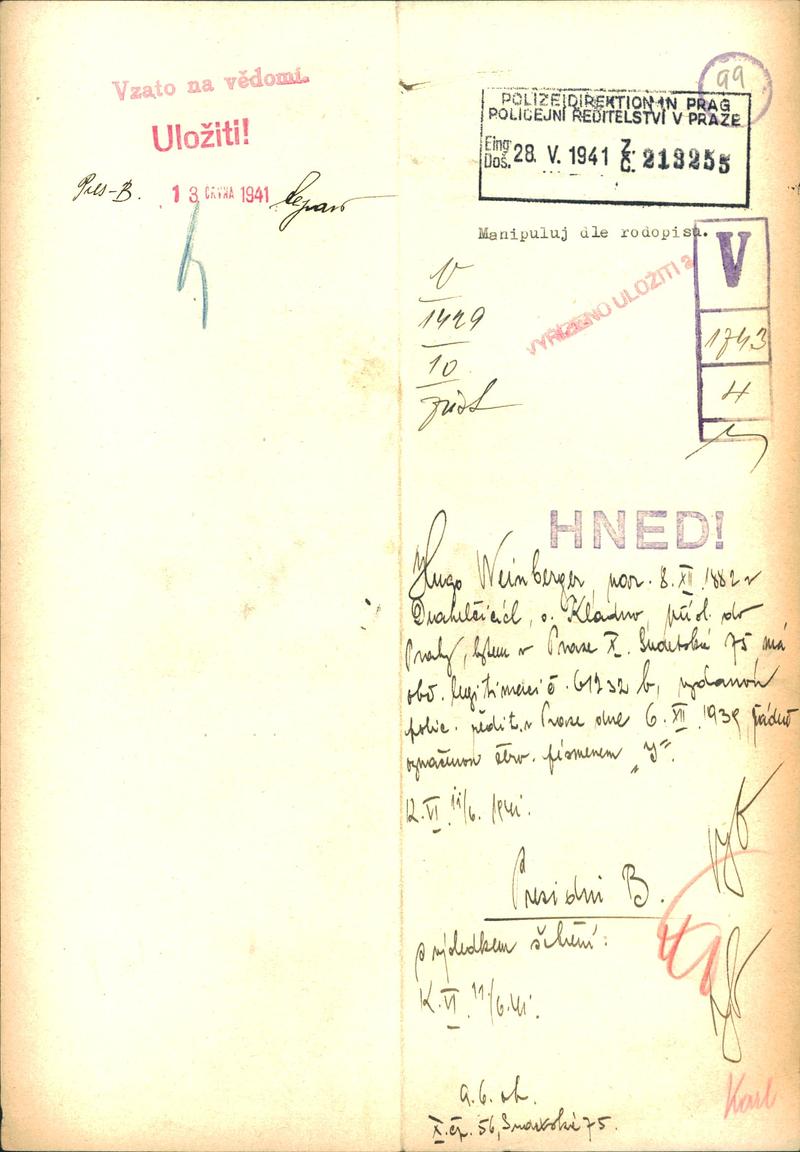 Vzato na vědomí.
Uložiti!
Pres-B. 13 ČRVNA 1941
99
POLIZEIDIREKTION IN PRAG
POLICEJNÍ ŘEDITELSTVÍ V PRAZE
Eing. Doš. 28. V. 1941 Z. Č. 213255
Manipuluj dle rodopisu.
V
1429
10
VYŘÍZENO ULOŽITI a
V
1743
4
HNED!
Hugo Weinberger, nar. 8.XII.1882 v
Drahelčicích, o. Kladno, přísl. do
Prahy, bytem v Praze X. Sudetská 75 má
obč. legitimaci č. 61232 b, vydanou
polic. ředit. v Praze dne 6.XII.1939, řádně
označenou červ. písmenem „J".
K.VI 11/6. 1941.
Presidiu B.
s výsledkem šetření:
K.VI. 11/6.41.
X.čp. 56, Sudetská 75.
Karl